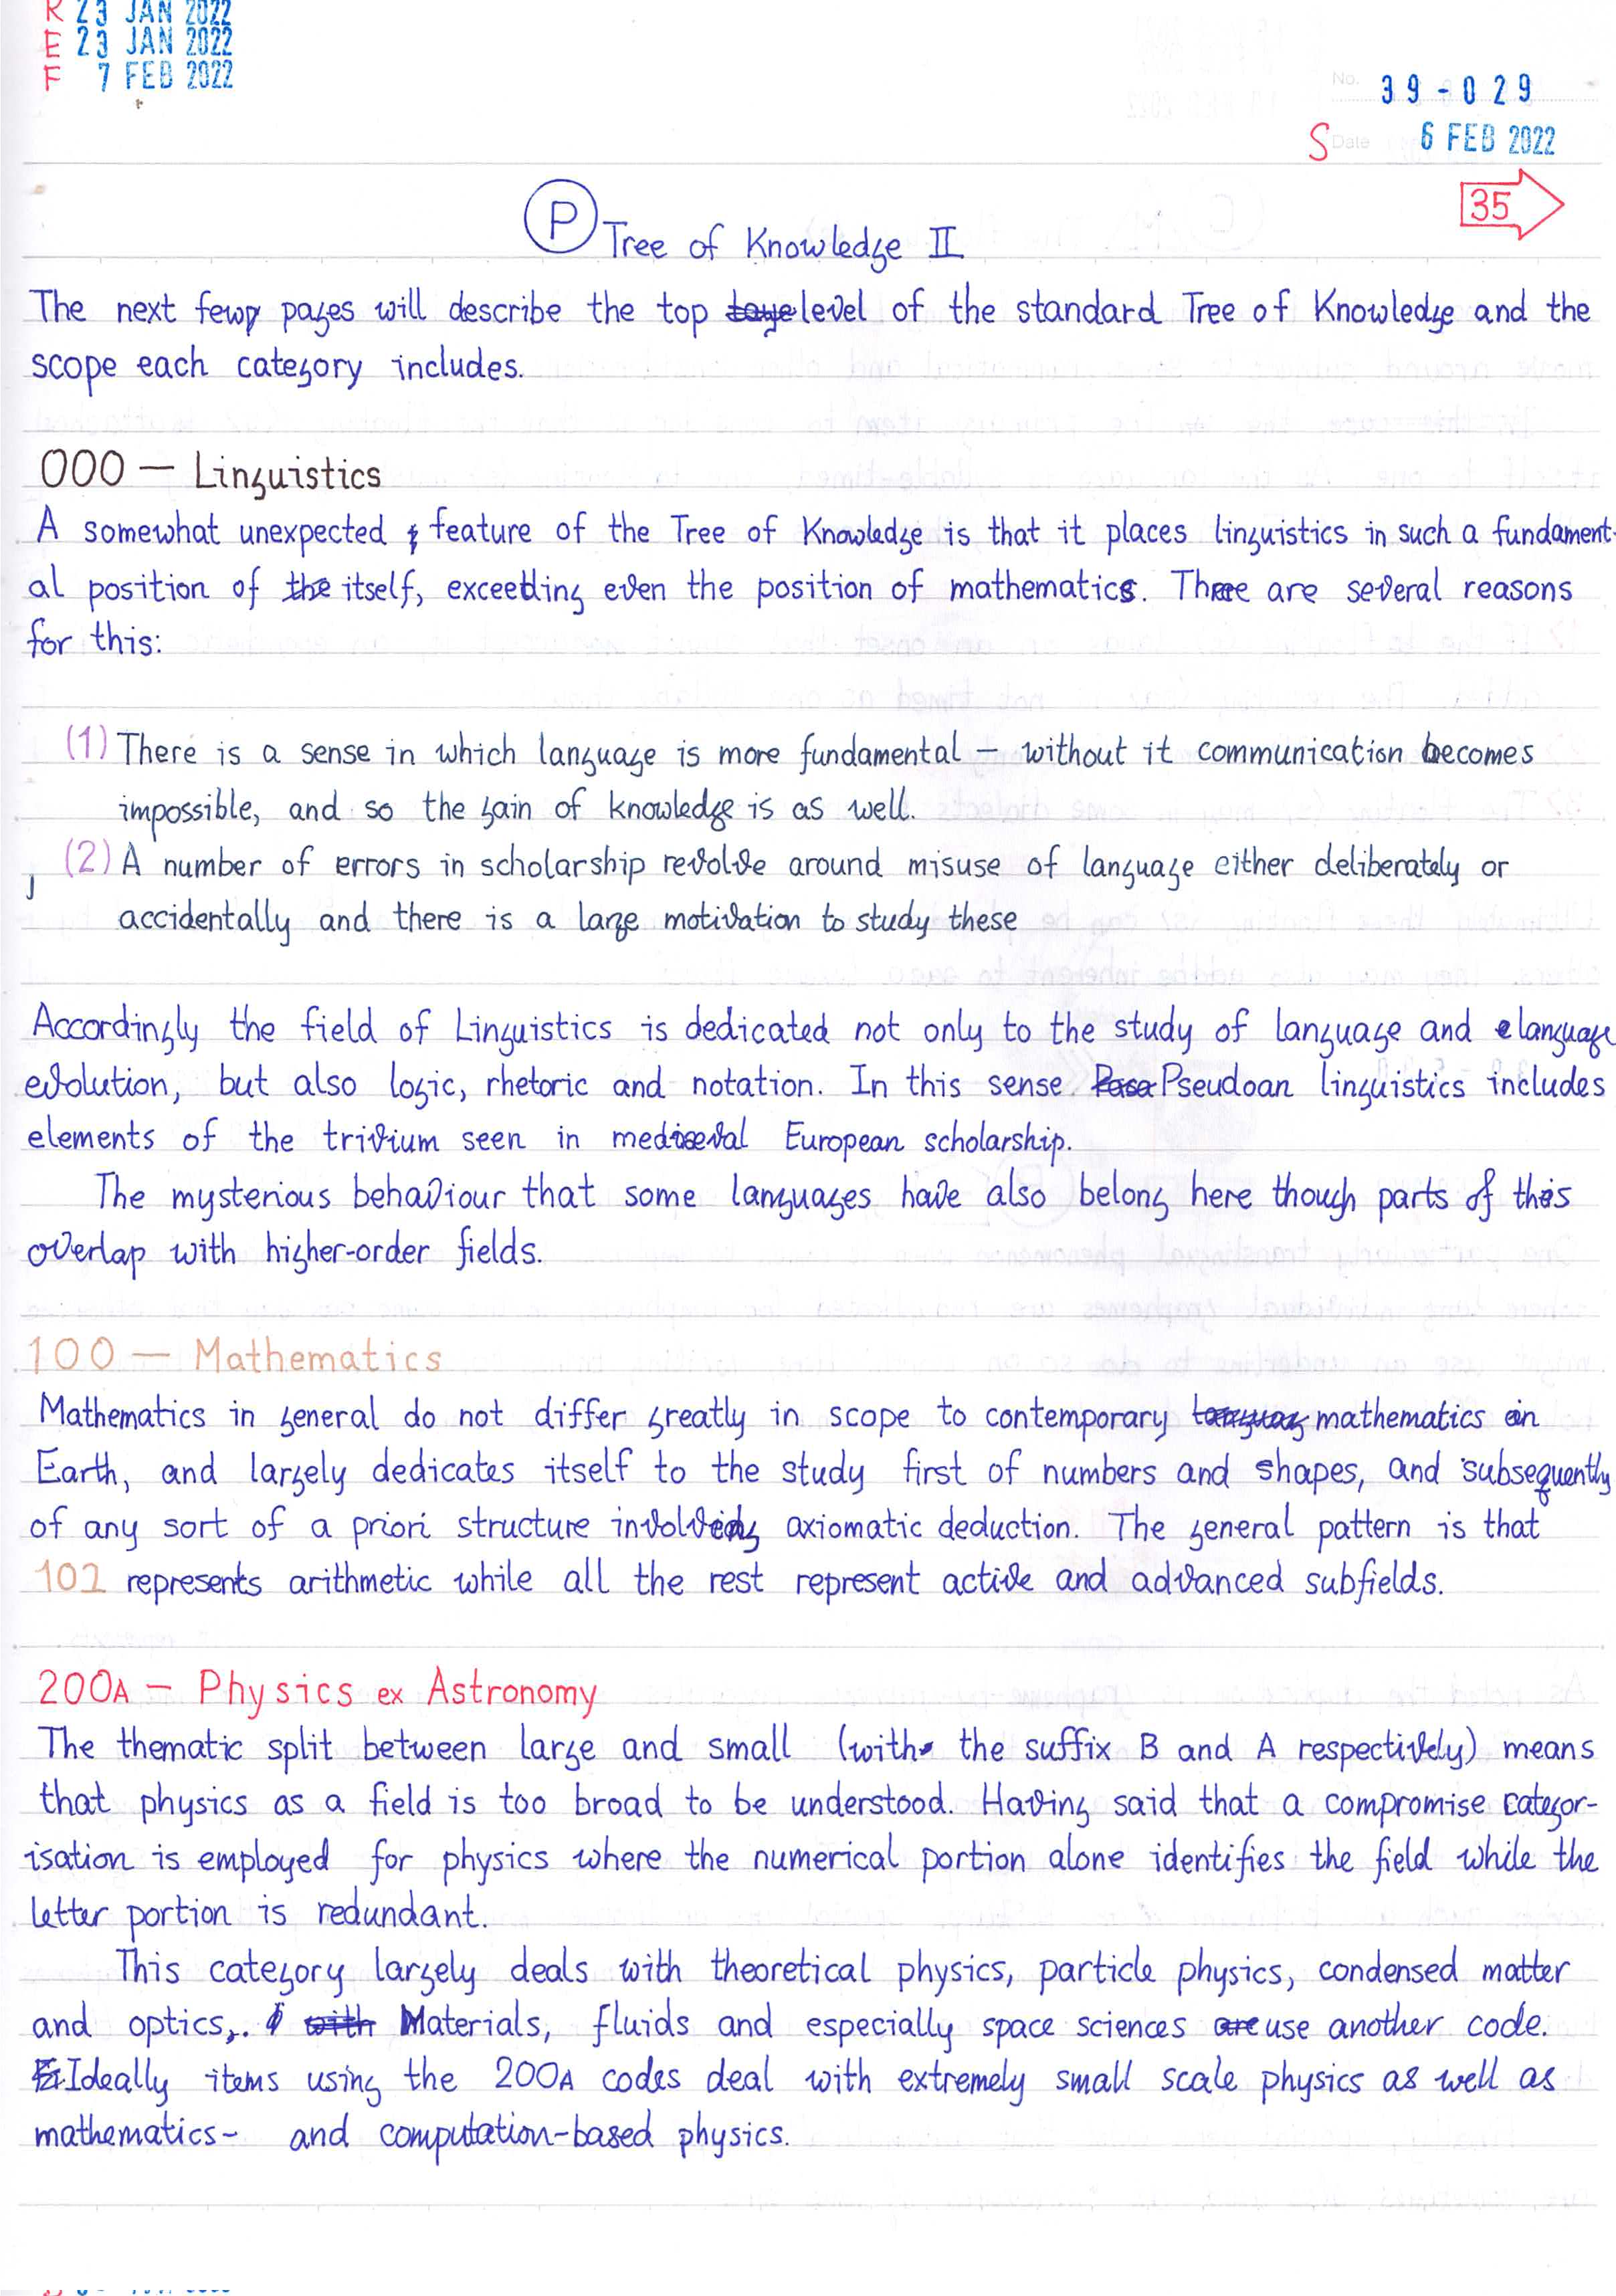 R 23 JAN 2022
E 23 JAN 2022
F 7 FEB 2022
No. 39-029
S Date 6 FEB 2022
35
P Tree of Knowledge II
The next few pages will describe the top level of the standard Tree of Knowledge and the
scope each category includes.
000 — Linguistics
A somewhat unexpected feature of the Tree of Knowledge is that it places linguistics in such a fundament-
al position of itself, exceeding even the position of mathematics. There are several reasons
for this:
(1) There is a sense in which language is more fundamental — without it communication becomes
impossible, and so the gain of knowledge is as well.
(2) A number of errors in scholarship revolve around misuse of language either deliberately or
accidentally and there is a large motivation to study these
Accordingly the field of Linguistics is dedicated not only to the study of language and language
evolution, but also logic, rhetoric and notation. In this sense Pseudoan linguistics includes
elements of the trivium seen in medieval European scholarship.
The mysterious behaviour that some languages have also belong here though parts of this
overlap with higher-order fields.
100 — Mathematics
Mathematics in general do not differ greatly in scope to contemporary mathematics on
Earth, and largely dedicates itself to the study first of numbers and shapes, and subsequently
of any sort of a priori structure involving axiomatic deduction. The general pattern is that
102 represents arithmetic while all the rest represent active and advanced subfields.
200A — Physics ex Astronomy
The thematic split between large and small (with the suffix B and A respectively) means
that physics as a field is too broad to be understood. Having said that a compromise categor-
isation is employed for physics where the numerical portion alone identifies the field while the
letter portion is redundant.
This category largely deals with theoretical physics, particle physics, condensed matter
and optics. Materials, fluids and especially space sciences use another code.
Ideally items using the 200A codes deal with extremely small scale physics as well as
mathematics- and computation-based physics.